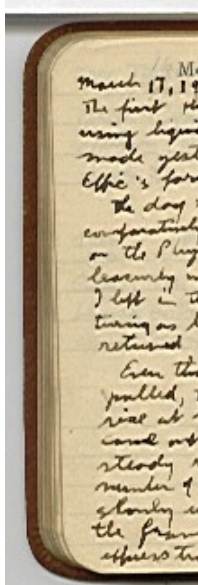 Mo
March 17, 19
The first
using liqui
made yest
Effie's far
The day
comparativel
on the Plu
leasurely
I left in t
turning as
returned
Even th
pulled,
rise at
came out
steady
number of
slowly
the fram